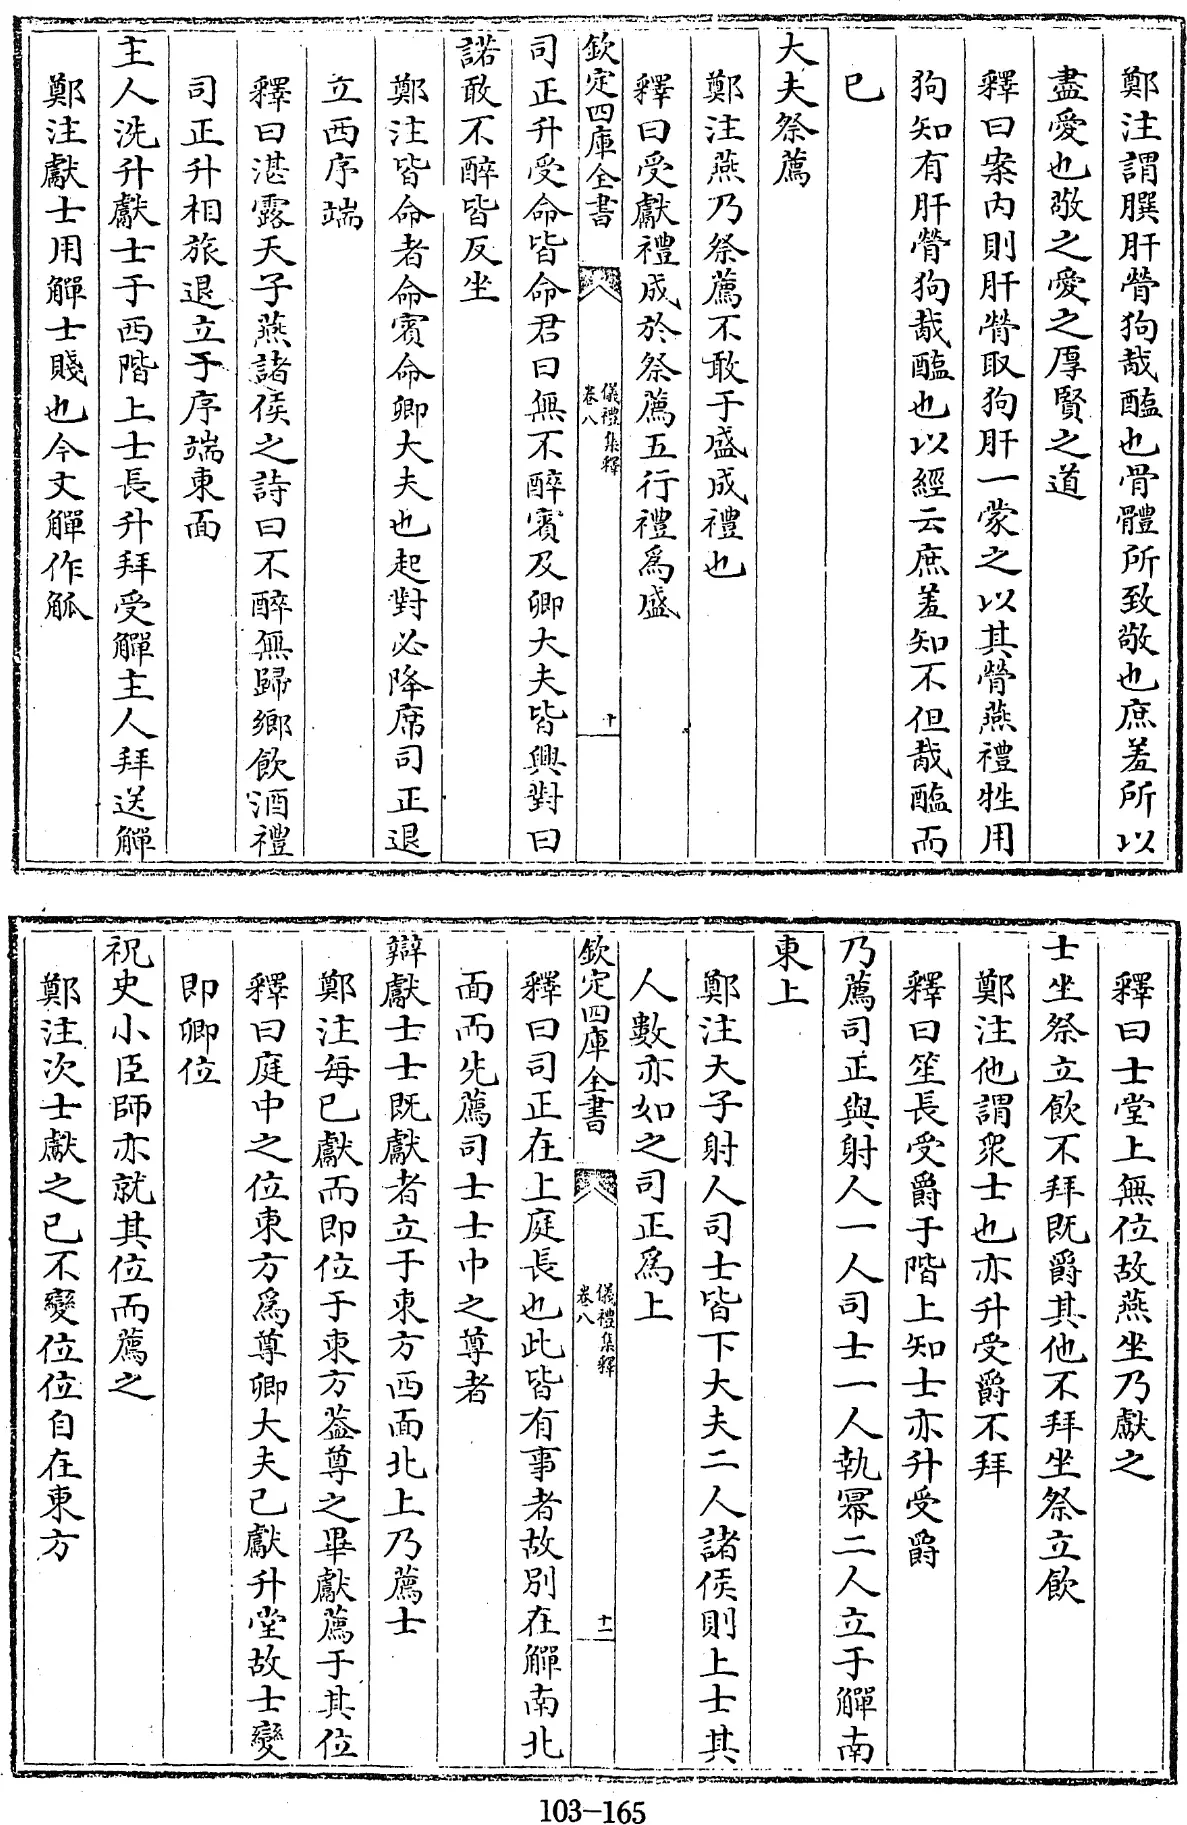 鄭注謂膮肝膋狗胾醢也骨體所致敬也庶羞所以
盡愛也敬之愛之厚賢之道
釋曰案内則肝膋取狗肝一蒙之以其膋燕禮牲用
狗知有肝膋狗胾醢也以經云庶羞知不但胾醢而
已
大夫祭薦
鄭注燕乃祭薦不敢于盛成禮也
釋曰受獻禮成於祭薦五行禮爲盛
欽定四庫全書
儀禮集釋
卷八
十
司正升受命皆命君曰無不醉賓及卿大夫皆興對曰
諾敢不醉皆反坐
鄭注皆命者命賓命卿大夫也起對必降席司正退
立西序端
釋曰湛露天子燕諸侯之詩曰不醉無歸鄉飲酒禮
司正升相旅退立于序端東面
主人洗升獻士于西階上士長升拜受觶主人拜送觶
鄭注獻士用觶士賤也今文觶作觚
釋曰士堂上無位故燕坐乃獻之
士坐祭立飲不拜既爵其他不拜坐祭立飲
鄭注他謂衆士也亦升受爵不拜
釋曰笙長受爵于階上知士亦升受爵
乃薦司正與射人一人司士一人執冪二人立于觶南
東上
鄭注大子射人司士皆下大夫二人諸侯則上士其
人數亦如之司正爲上
欽定四庫全書
儀禮集釋
卷八
十一
釋曰司正在上庭長也此皆有事者故別在觶南北
面而先薦司士士中之尊者
辯獻士士既獻者立于東方西面北上乃薦士
鄭注每已獻而即位于東方葢尊之畢獻薦于其位
釋曰庭中之位東方爲尊卿大夫已獻升堂故士變
即卿位
祝史小臣師亦就其位而薦之
鄭注次士獻之已不變位位自在東方
103-165